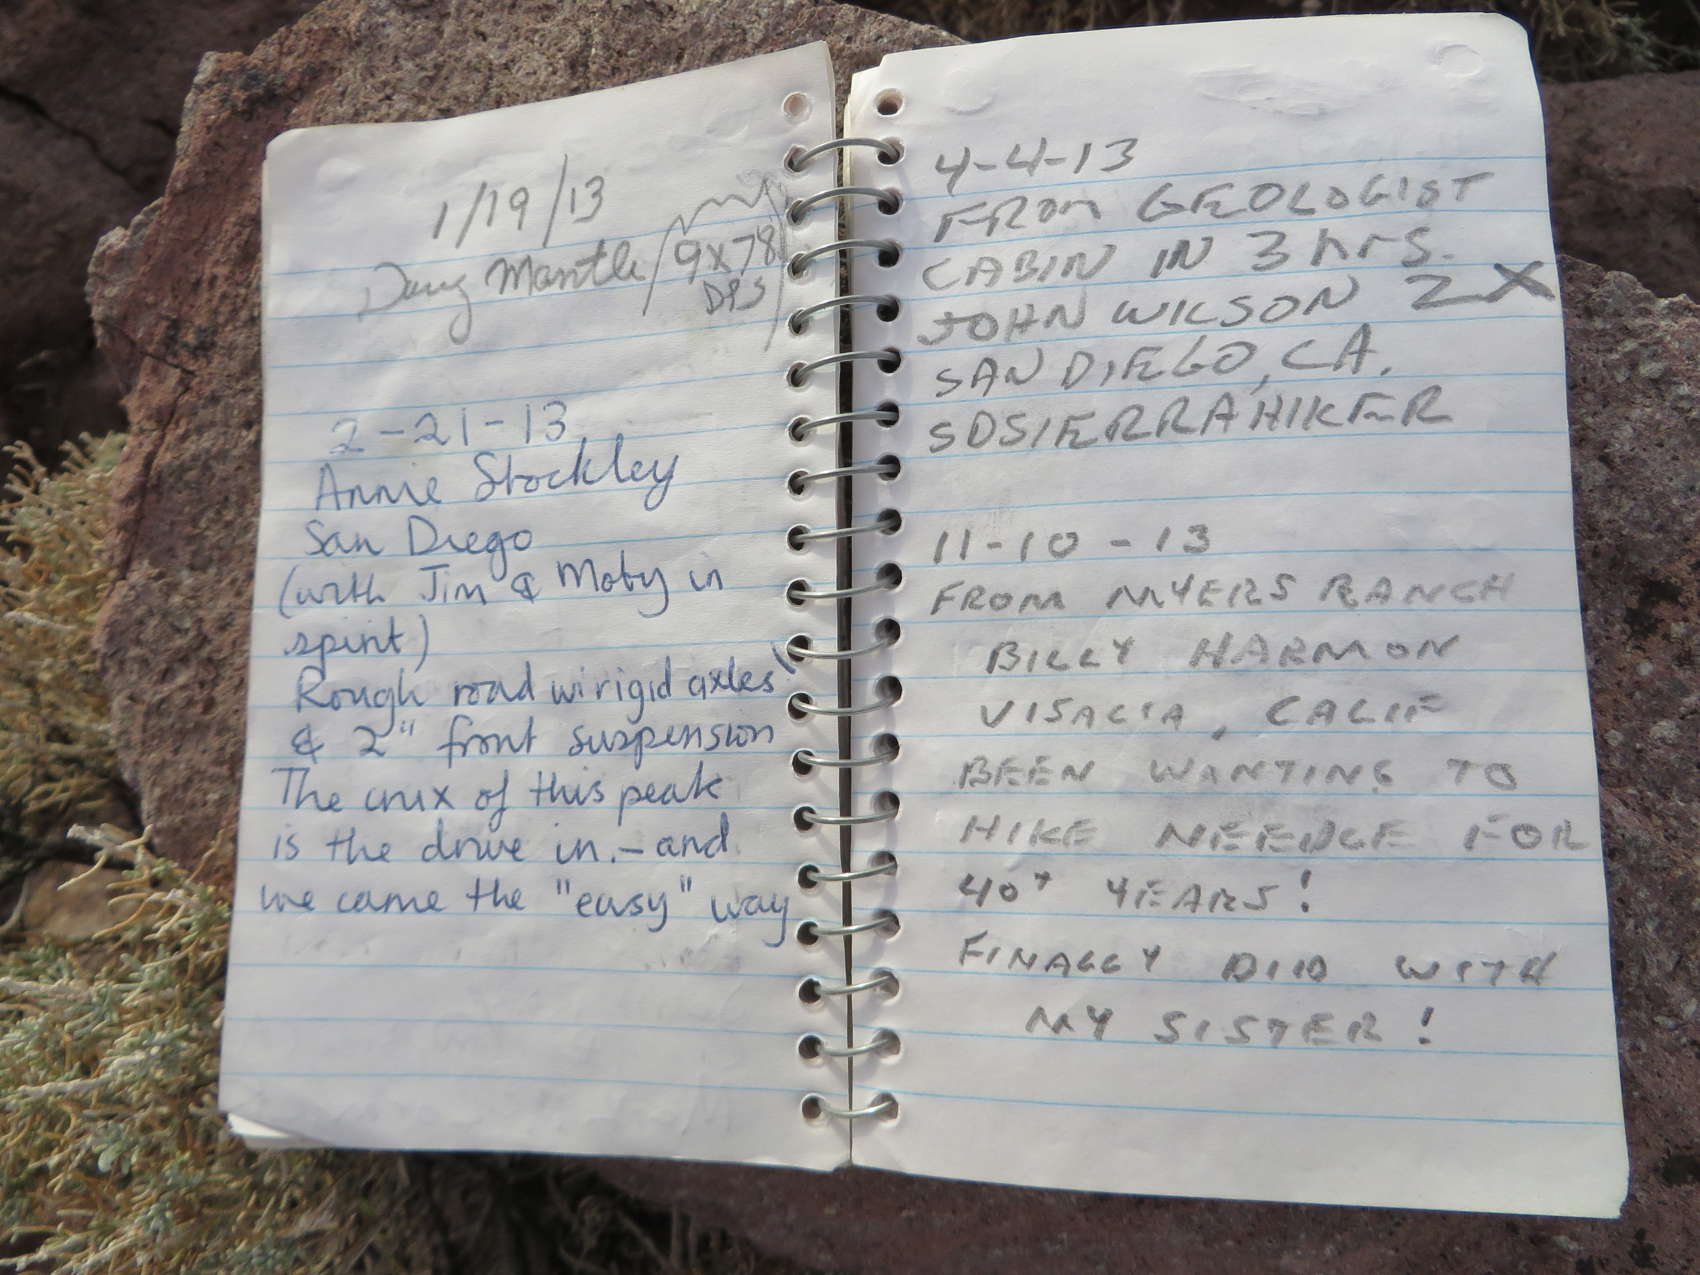 1/19/13
Doug Mantle / 9x78
DPS
2-21-13
Annie Stockley
San Diego
(with Jim & Moby in
spirit)
Rough road w/ rigid axles
& 2" front suspension
The crux of this peak
is the drive in. – and
we came the "easy" way
4-4-13
FROM GEOLOGIST
CABIN IN 3 hrs.
JOHN WILSON 2X
SAN DIEGO, CA.
SDSIERRAHIKER
11-10-13
FROM MYERS RANCH
BILLY HARMON
VISALIA, CALIF
BEEN WANTING TO
HIKE NEEDLE FOR
40+ YEARS!
FINALLY DID WITH
MY SISTER!